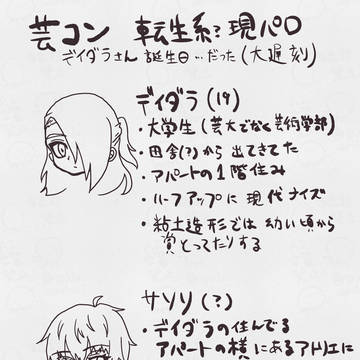 芸コン 転生系?現パロ
デイダラさん 誕生日…だった(大遅刻)
デイダラ(19)
・大学生(芸大でなく芸術学部)
・田舎(?)から出てきてた
・アパートの1階住み
・ハーフアップに現代ナイズ
・粘土造形では幼い頃から
賞とってたりする
サソリ(?)
・デイダラの住んでる
アパートの横にあるアトリエに